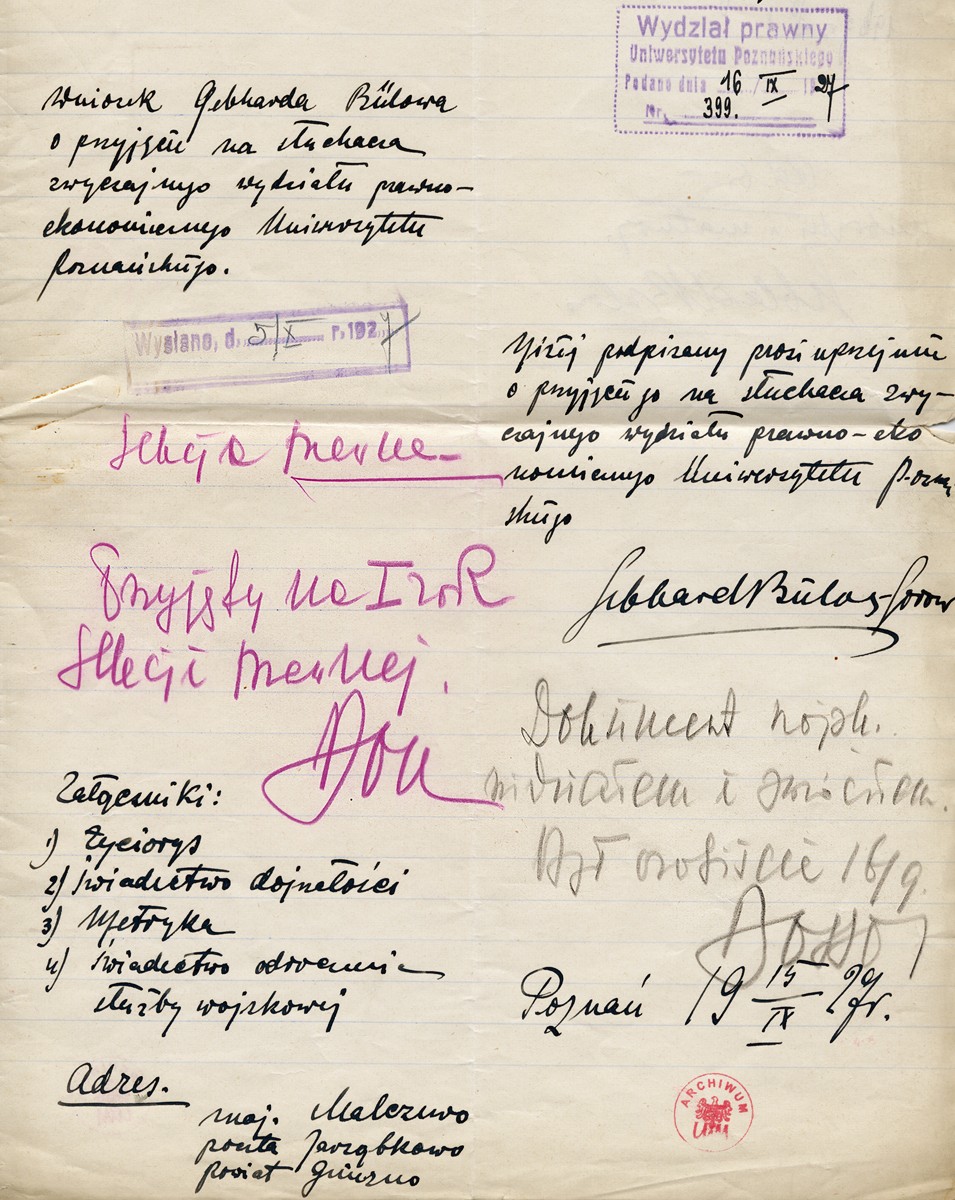 Wydział prawny
Uniwersytetu Poznańskiego
Podano dnia 16/IX 1927
Nr. 399.
Wniosek Gebharda Bülowa
o przyjęcie na słuchacza
zwyczajnego wydziału prawno-
ekonomicznego Uniwersytetu
Poznańskiego.
Wysłano, d. 5/X r. 1927
Sekcja prawna
Przyjęty na I rok
Sekcji prawnej.
Załączniki:
1) Życiorys
2) Świadectwo dojrzałości
3) Metryka
4) Świadectwo odroczenia
służby wojskowej
Adres.
maj. Malczewo
poczta Jarząbkowo
powiat Gniezno
Niżej podpisany prosi uprzejmie
o przyjęcie go na słuchacza zwy-
czajnego wydziału prawno-eko
nomicznego Uniwersytetu Poznań
skiego
Gebhard Bülow
Dokument wojsk.
widziałem i zwróciłem.
Był osobiście 16/9.
Poznań 19 15/IX 27 r.
ARCHIWUM
UAM